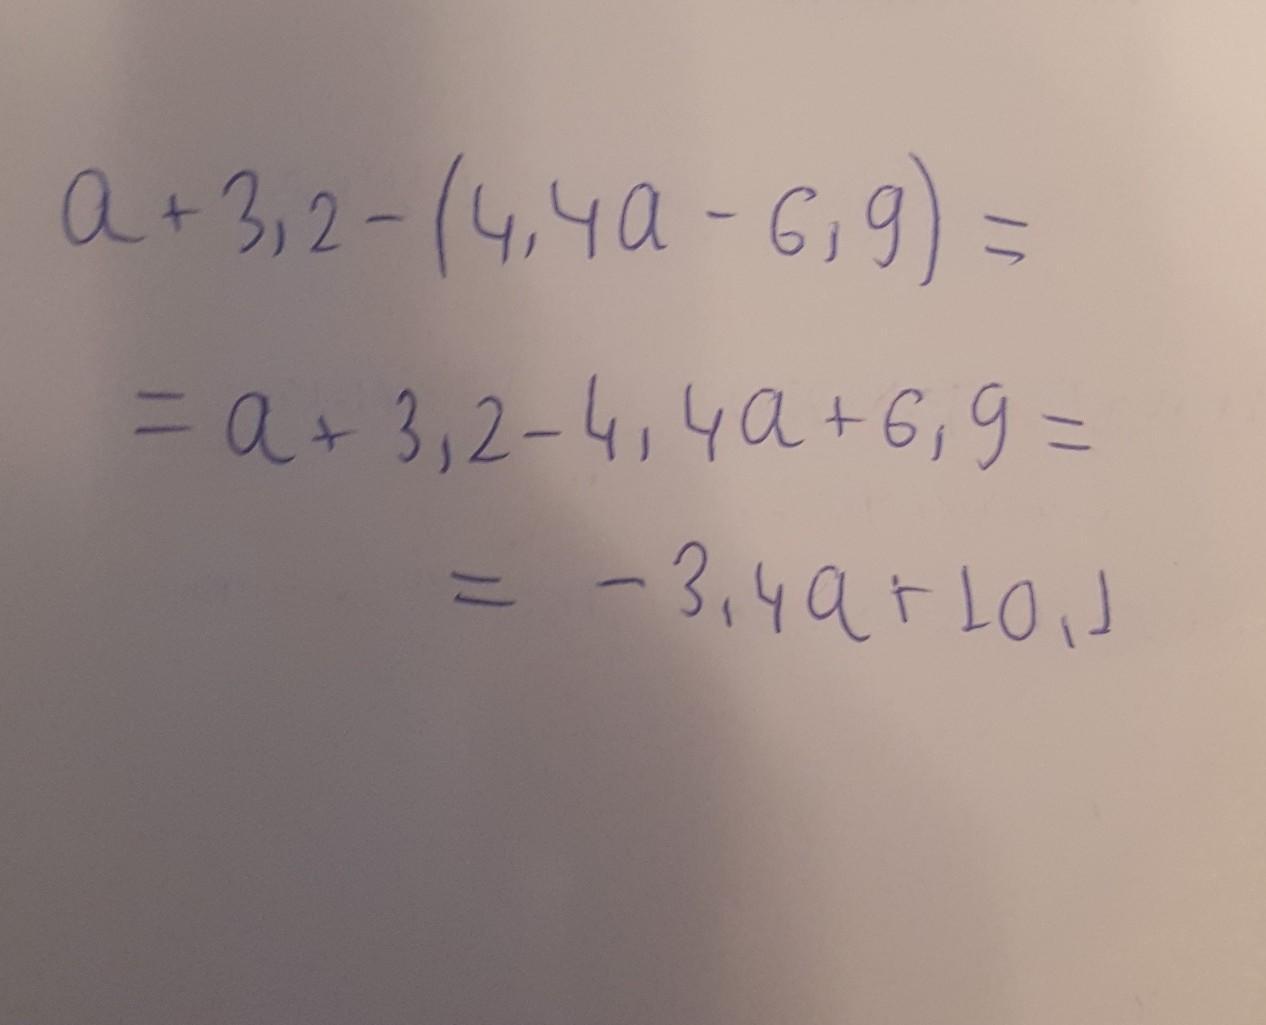 a + 3,2 - (4,4a - 6,9) =
= a + 3,2 - 4,4a + 6,9 =
= - 3,4a + 10,1